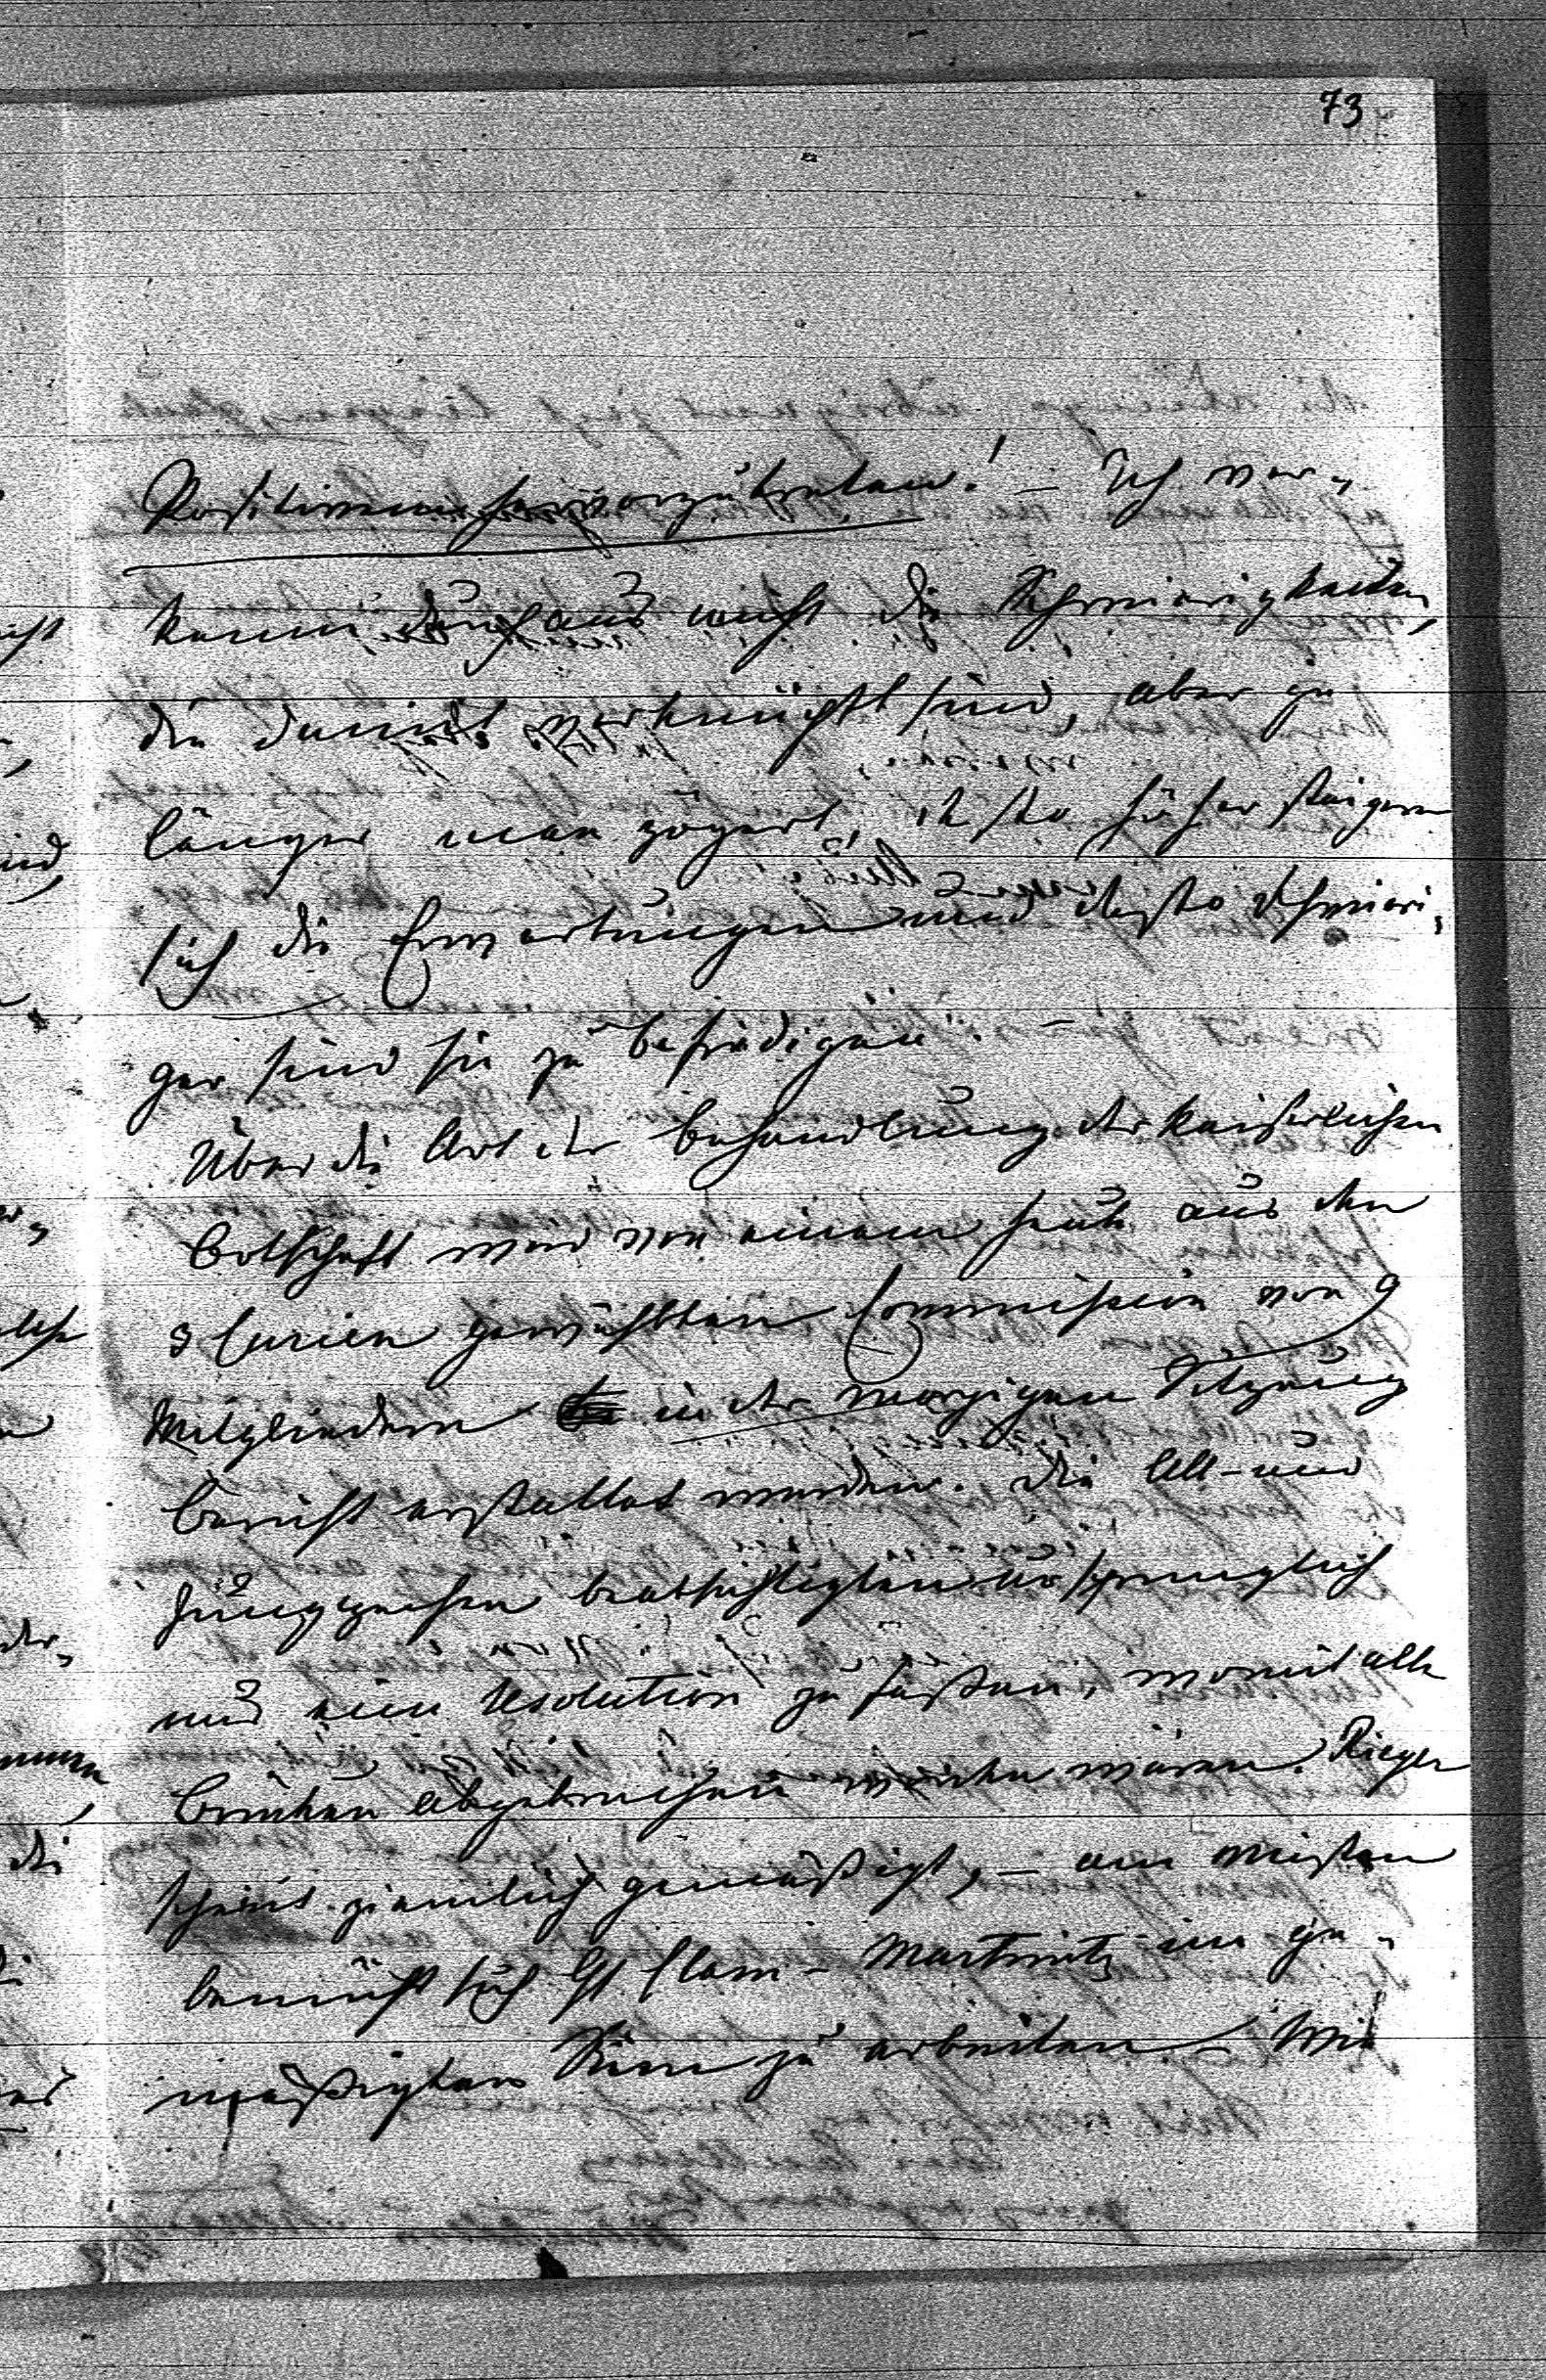 73
Positionen hervorzutreten! – Ich ver-
kenne durchaus nicht die Schwierigkeiten,
die damit verknüpft sind, aber je
länger man zögert, desto höher steigern
sich die Erwartungen und desto schwieri-
ger sind sie zu befriedigen. –
Über die Art der Behandlung der kaiserlichen
Botschaft wird von einem heute aus den
3 Curien gewählten Commission von 9
Mitgliedern in der morgigen Sitzung
Bericht erstattet werden. Die Alt- und
Jungczechen beabsichtigten ursprünglich
nur eine Resolution zu fassen, womit alle
Brücken abgebrochen worden wären. Rieger
scheint ziemlich gemäßigt, – am meisten
bemüht sich Gf. Clam-Martinitz im ge-
mäßigten Sinne zu arbeiten – Wie